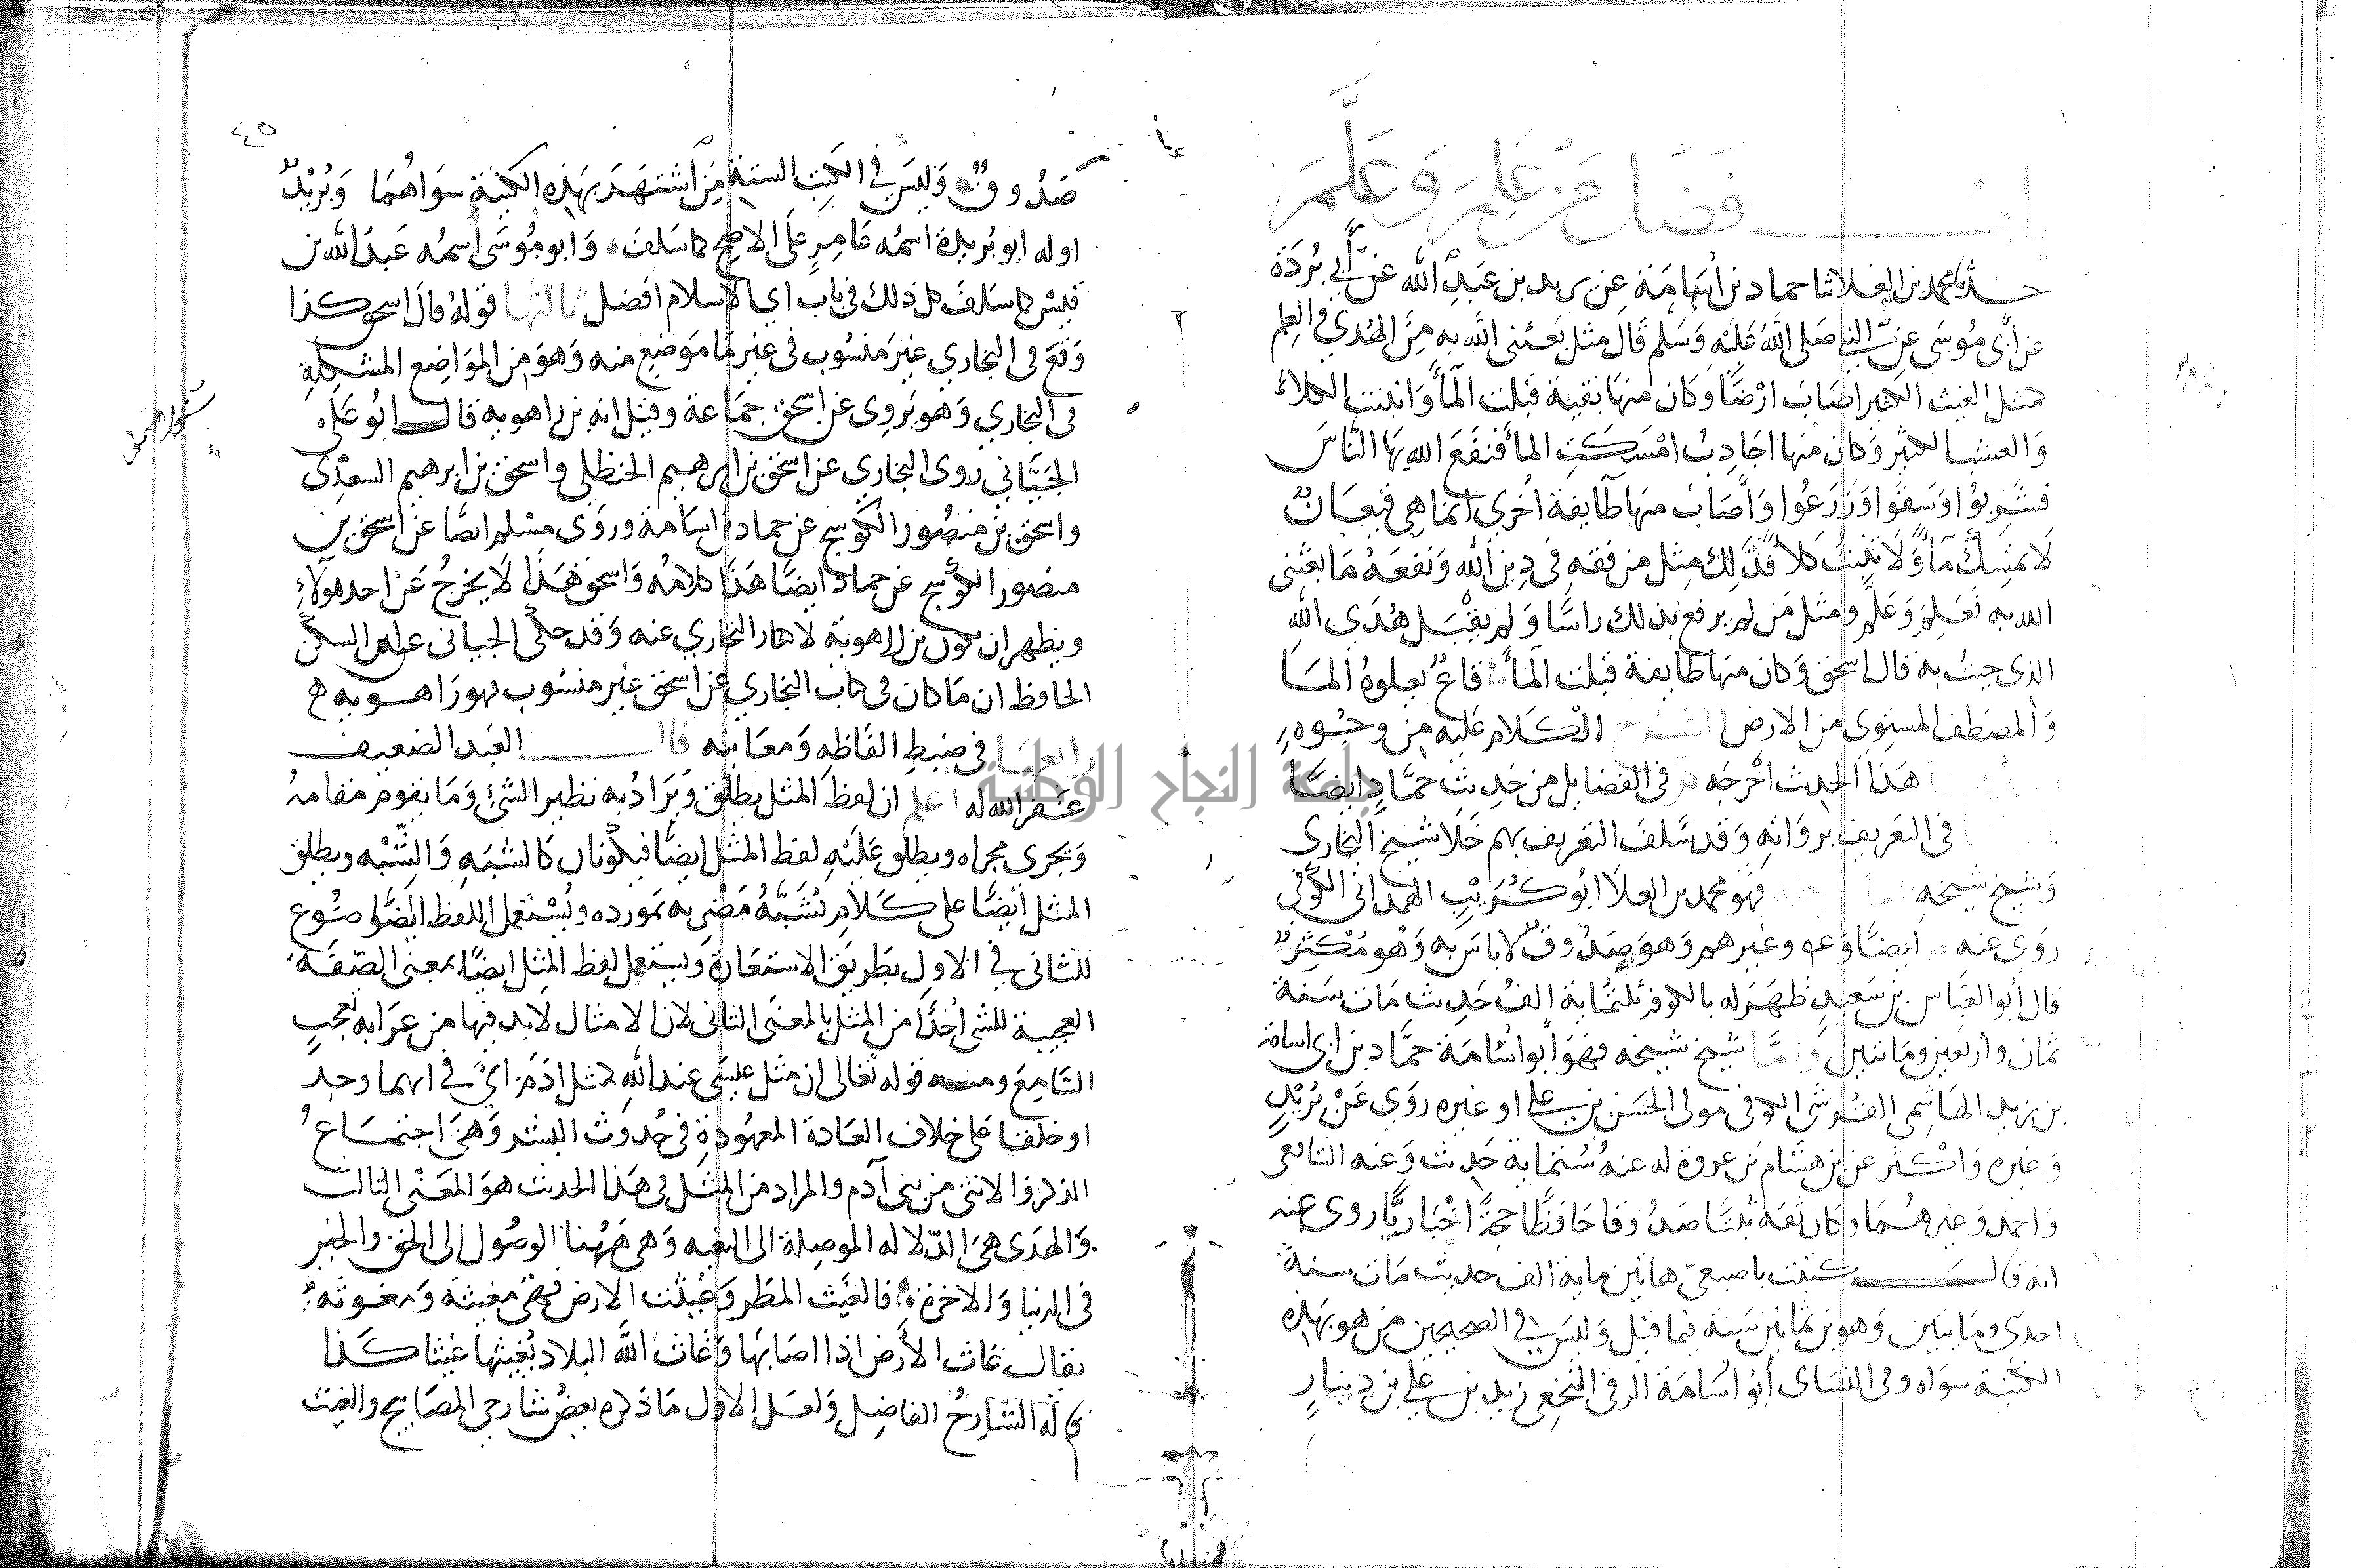 باب فضل من علم وعلم
حدثنا محمد بن العلا ثنا حماد بن اسامة عن بريد بن عبد الله عن أبي بردة
عن ابي موسى عن النبي صلى الله عليه وسلم قال مثل بعثني الله به من الهدي والعلم
كمثل الغيث الكثير اصاب ارضا وكان منها نقية قبلت المأ وانبتت الكلاء
والعشب الكثير وكان منها اجادب امسكت المأ فنفع الله بها الناس
فشربوا وسقوا وزرعوا وأصاب منها طايفة اخري انما هي قيعان
لا تمسك مأ ولا تنبت كلأ فذلك مثل من فقه في دين الله ونفعه ما بعثني
الله به فعلم وعلم ومثل من لم يرفع بذلك راسا ولم يقبل هدي الله
الذي جيت به قال اسحق وكان منها طايفة قبلت المأ قاع يعلوه الما
والمصطف المستوي من الارض الشرح الكلام عليه من وجوه
هذا الحديث اخرجه م في الفضايل من حديث حماد ايضا
في التعريف برواته وقد سلف التعريف بهم خلا شيخ البخاري
وشيخ شيخه فهو محمد بن العلا ابو كريب الهمداني الكوفي
روى عنه ايضا و عه وغيرهم وهو صدوق لا باس به وهو مكثر
قال أبو العباس بن سعيد ظهر له بالكوفة ثلثماية الف حديث مات سنة
ثمان وأربعين ومائتين وأما شيخ شيخه فهو أبو اسامة حماد بن ابي اسامة
بن زيد الهاشمي القرشي الكوفي مولى الحسن بن علي او غيره روي عن بريد
وغيره واكثر عن بن هشام بن عروة له عنه ستماية حديث وعنه الشافعي
واحمد وغيرهما وكان ثقة ثبتا صدوقا حافظا حجة اخباريا روى عنه
انه قال كتبت باصبعي هاتين ماية الف حديث مات سنة
احدى ومايتين وهو بن ثمانين سنة فيما قيل وليس في الصحيحين من هو بهذه
الكنية سواه وفي النساى أبو اسامة الرقي النخعي زيد بن علي بن دينار
٤٥
صدوق وليس في الكتب الستة من اشتهر بهذه الكنية سواهما وبريد
اوله ابو بريدة اسمه عامر على الاصح كما سلف وابو موسى اسمه عبد الله بن
قيس كما سلف كل ذلك في باب اي الاسلام افضل ثالثها قوله قال اسحق كذا
وقع في البخاري غير منسوب في غير ما موضع منه وهو من المواضع المشكلة
في البخاري وهو يروي عن اسحق جماعة وقيل انه بن راهويه قال ابو علي
الجياني روى البخاري عن اسحق بن ابرهيم الحنظلي واسحق بن ابرهيم السعدي
واسحق بن منصور الكوسج عن حماد بن اسامة وروى مسلم ايضا عن اسحق بن
منصور الكوسج عن حماد ايضا هذا كلامه واسحق هذا لا يخرج عن احد هولآء
ويظهر ان يكون بن راهوية لاكثار البخاري عنه وقد حكى الجياني عن بن السكن
الحافظ ان ما كان في كتاب البخاري عن اسحق غير منسوب فهو راهويه
رابعها في ضبط الفاظه ومعانيه قال العبد الضعيف
غفر الله له اعلم ان لفظ المثل يطلق ويراد به نظير الشئ وما يقوم مقامه
ويجرى مجراه ويطلق عليه لفظ المثل ايضا فيكونان كالشبه والشبه ويطلق
المثل ايضا على كلام تشبه مضربه بمورده ويستعمل اللفظ ايضا موضوع
للثاني في الاول بطريق الاستعارة ويستعمل لفظ المثل ايضا بمعنى الصفة
العجيبة للشي اخذا من المثل بالمعنى الثاني لان الامثال لا بد فيها من غرابه تعجب
السامع ومنه قوله تعالى ان مثل عيسى عند الله كمثل ادم اي في انهما وجدا
او خلقا على خلاف العادة المعهودة في حدوث البشر وهى اجتماع
الذكر والانثى من بني آدم والمراد من المثل في هذا الحديث هو المعنى الثالث
والهدى هي الدلاله الموصلة الى البغيه وهى ههنا الوصول الى الحق والخير
في الدنيا والاخرة فالغيث المطر وغيثت الارض فهي مغيثة ومغوثه
يقال غاث الأرض اذا اصابها وغاث الله البلاد يغيثها غيثا كذا
قاله الشارح الفاضل ولعل الاول ما ذكره بعض شارحي المصابيح والغيث
جامعة النجاح الوطنية